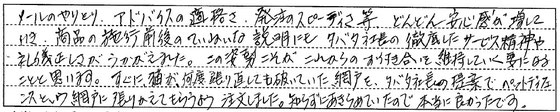 メールのやりとり、アドバイスの適格さ、発注のスピーディさ等、どんどん安心感が増して
いき、商品の施行前後のていねいな説明にもタバタ社長の徹底したサービス精神や
礼儀正しさがうかがえました。この姿勢こそがこれからのお付き合いを維持していく要になる
ことと思います。すでに猫が何度張り直しても破いていた網戸を、タバタ社長の提案でペットディフェ
ンスという網戸に張りかえてもらうよう注文しました。知らずにあきらめていたので本当に良かったです。